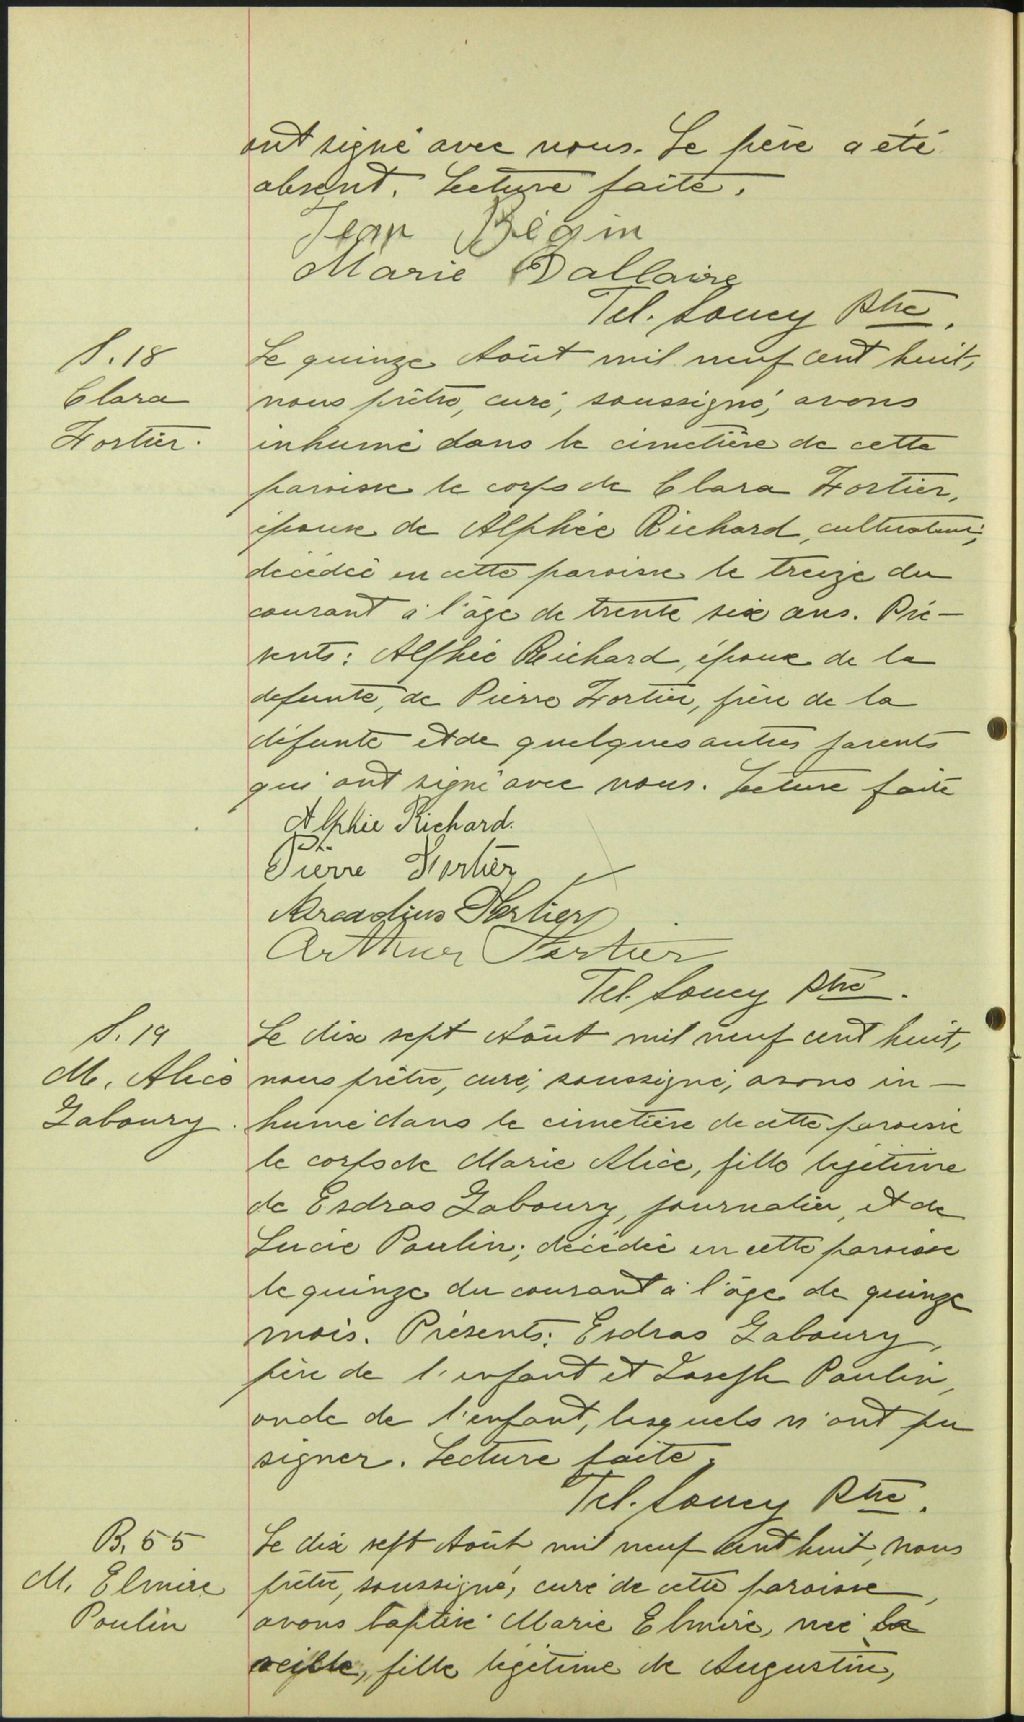 ont signé avec nous. Le père a été
absent. Lecture faite.
Jean Bégin
Marie Dallaire
Tel. Soucy Ptre.
S. 18
Clara
Fortier.
Le quinze Août mil neuf cent huit,
nous prêtre, curé, soussigné, avons
inhumé dans le cimetière de cette
paroisse le corps de Clara Fortier,
épouse de Alphée Richard, cultivateur,
décédée en cette paroisse le treize du
courant à l'âge de trente six ans. Pré-
sents: Alphée Richard, époux de la
defunte, de Pierre Fortier, père de la
défunte et de quelques autres parents
qui ont signé avec nous. Lecture faite
Alphie Richard.
Pierre Fortier
Arcadius Fortier
Arthur Fortier
Tel. Soucy Ptre.
S. 19
M. Alice
Gaboury.
Le dix sept Août mil neuf cent huit,
nous prêtre, curé, soussigné, avons in-
humé dans le cimetière de cette paroisse
le corps de Marie Alice, fille légitime
de Esdras Gaboury, journalier, et de
Lucie Poulin; décédée en cette paroisse
le quinze du courant à l'âge de quinze
mois. Présents: Esdras Gaboury,
père de l'enfant et Joseph Poulin,
oncle de l'enfant, lesquels n'ont pu
signer. Lecture faite.
Tel. Soucy Ptre.
B. 55
M. Elmire
Poulin
Le dix sept Août mil neuf cent huit, nous
prêtre, soussigné, curé de cette paroisse,
avons baptisé Marie Elmire, née la
veille, fille légitime de Augustin,